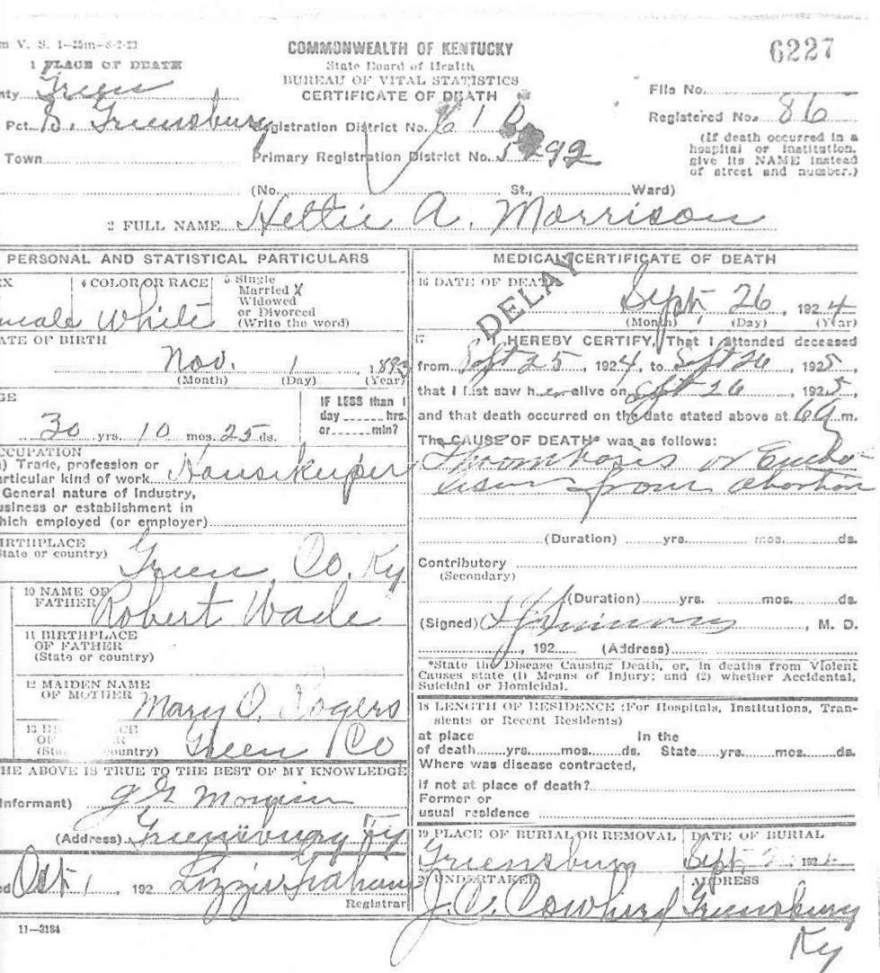 m V. S. 1-25m-8-2-23
COMMONWEALTH OF KENTUCKY
State Board of Health
BUREAU OF VITAL STATISTICS
CERTIFICATE OF DEATH
6227
1 PLACE OF DEATH
nty Green
File No.
Pct. S. Greensburg
egistration District No. 610
Registered No. 86
(If death occurred in a
hospital or institution,
give its NAME instead
of street and number.)
Town
Primary Registration District No. 5292
(No. St., Ward)
2 FULL NAME Hettie A. Morrison
PERSONAL AND STATISTICAL PARTICULARS
EX
male
4 COLOR OR RACE
White
5 Single
Married X
Widowed
or Divorced
(Write the word)
ATE OF BIRTH
Nov. 1, 1893
(Month) (Day) (Year)
GE
30 yrs. 10 mos. 25 ds.
IF LESS than 1
day hrs.
or min?
CCUPATION
) Trade, profession or
articular kind of work Housekeeper
General nature of Industry,
usiness or establishment in
hich employed (or employer)
IRTHPLACE
tate or country)
Green Co. Ky
10 NAME OF
FATHER Robert Wade
11 BIRTHPLACE
OF FATHER
(State or country)
12 MAIDEN NAME
OF MOTHER Mary O. Rogers
13 B CE
OF R
(Sta ountry) Green Co
HE ABOVE IS TRUE TO THE BEST OF MY KNOWLEDGE
Informant)
(Address) Greensburg Ky
ed Oct 1, 192 Lizzie Graham
Registrar
11-3184
MEDICAL CERTIFICATE OF DEATH
DELAY
16 DATE OF DEATH
Sept. 26, 1924
(Month) (Day) (Year)
17 I HEREBY CERTIFY, That I attended deceased
from Sept 25, 1924, to Sept 26, 1925,
that I last saw her alive on Sept 26, 1925,
and that death occurred on the date stated above at 6 a. m.
The CAUSE OF DEATH* was as follows:
Thrombosis or Embo-
lism from abortion
(Duration) yrs. mos. ds.
Contributory
(Secondary)
(Duration) yrs. mos. ds.
(Signed) , M. D.
, 192 (Address)
*State the Disease Causing Death, or, in deaths from Violent
Causes state (1) Means of Injury; and (2) whether Accidental,
Suicidal or Homicidal.
18 LENGTH OF RESIDENCE (For Hospitals, Institutions, Tran-
sients or Recent Residents)
at place In the
of death yrs. mos. ds. State yrs. mos. ds.
Where was disease contracted,
if not at place of death?
Former or
usual residence
19 PLACE OF BURIAL OR REMOVAL
Greensburg
DATE OF BURIAL
Sept 192
UNDERTAKER
J. C. Cowherd
ADDRESS
Greensburg
Ky